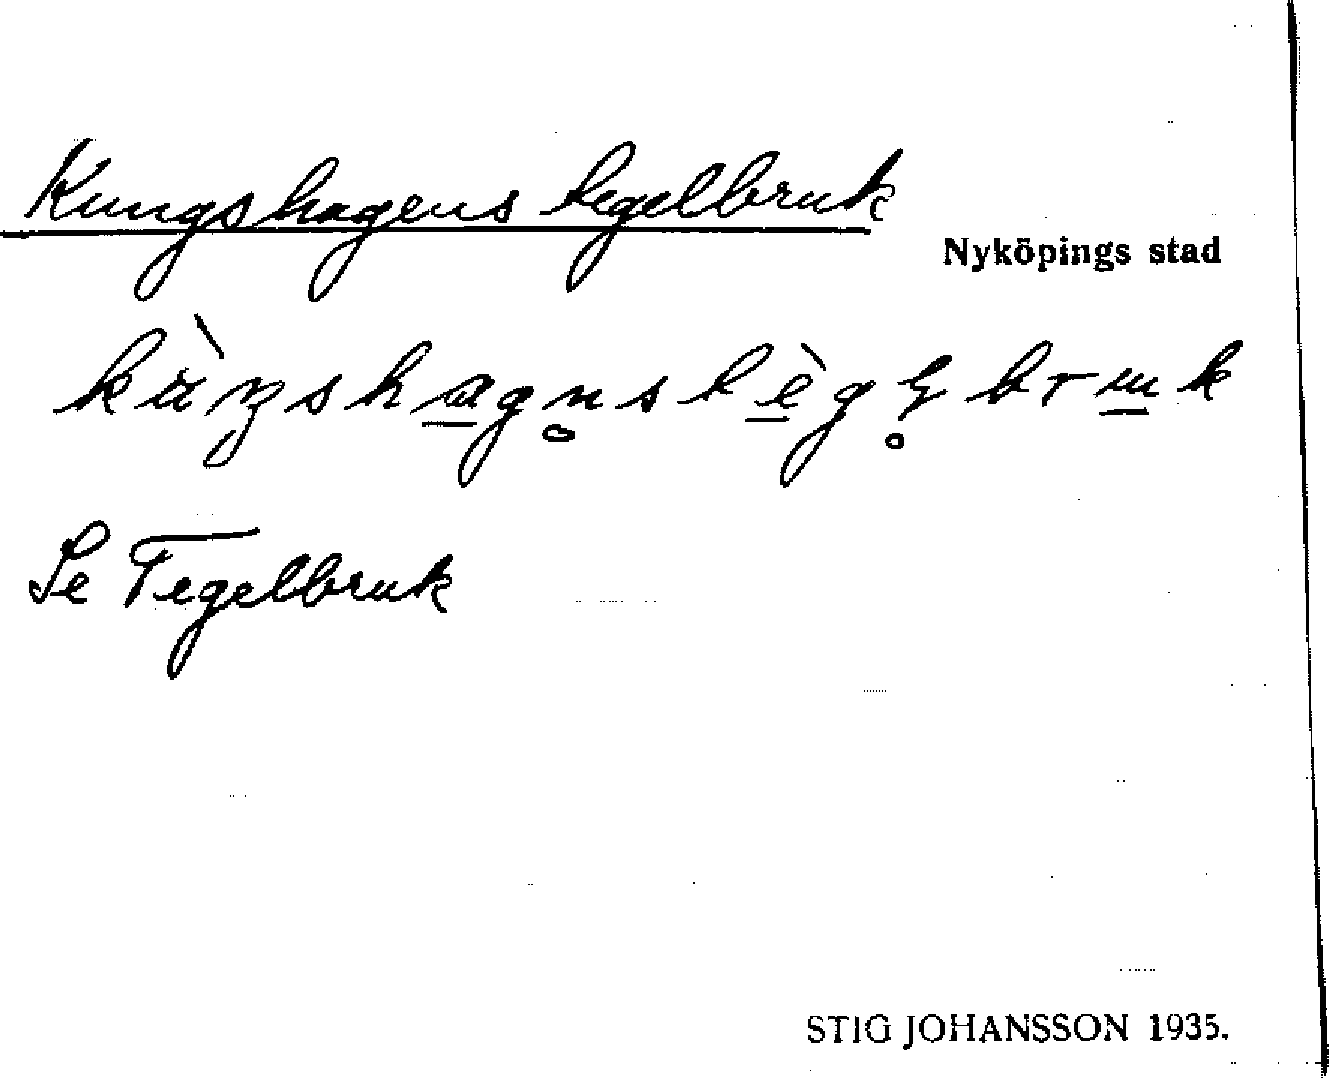 Kungshagens tegelbruk
Nyköpings stad
kùŋshagn̥stègl̥bruk
Se Tegelbruk
STIG JOHANSSON 1935.